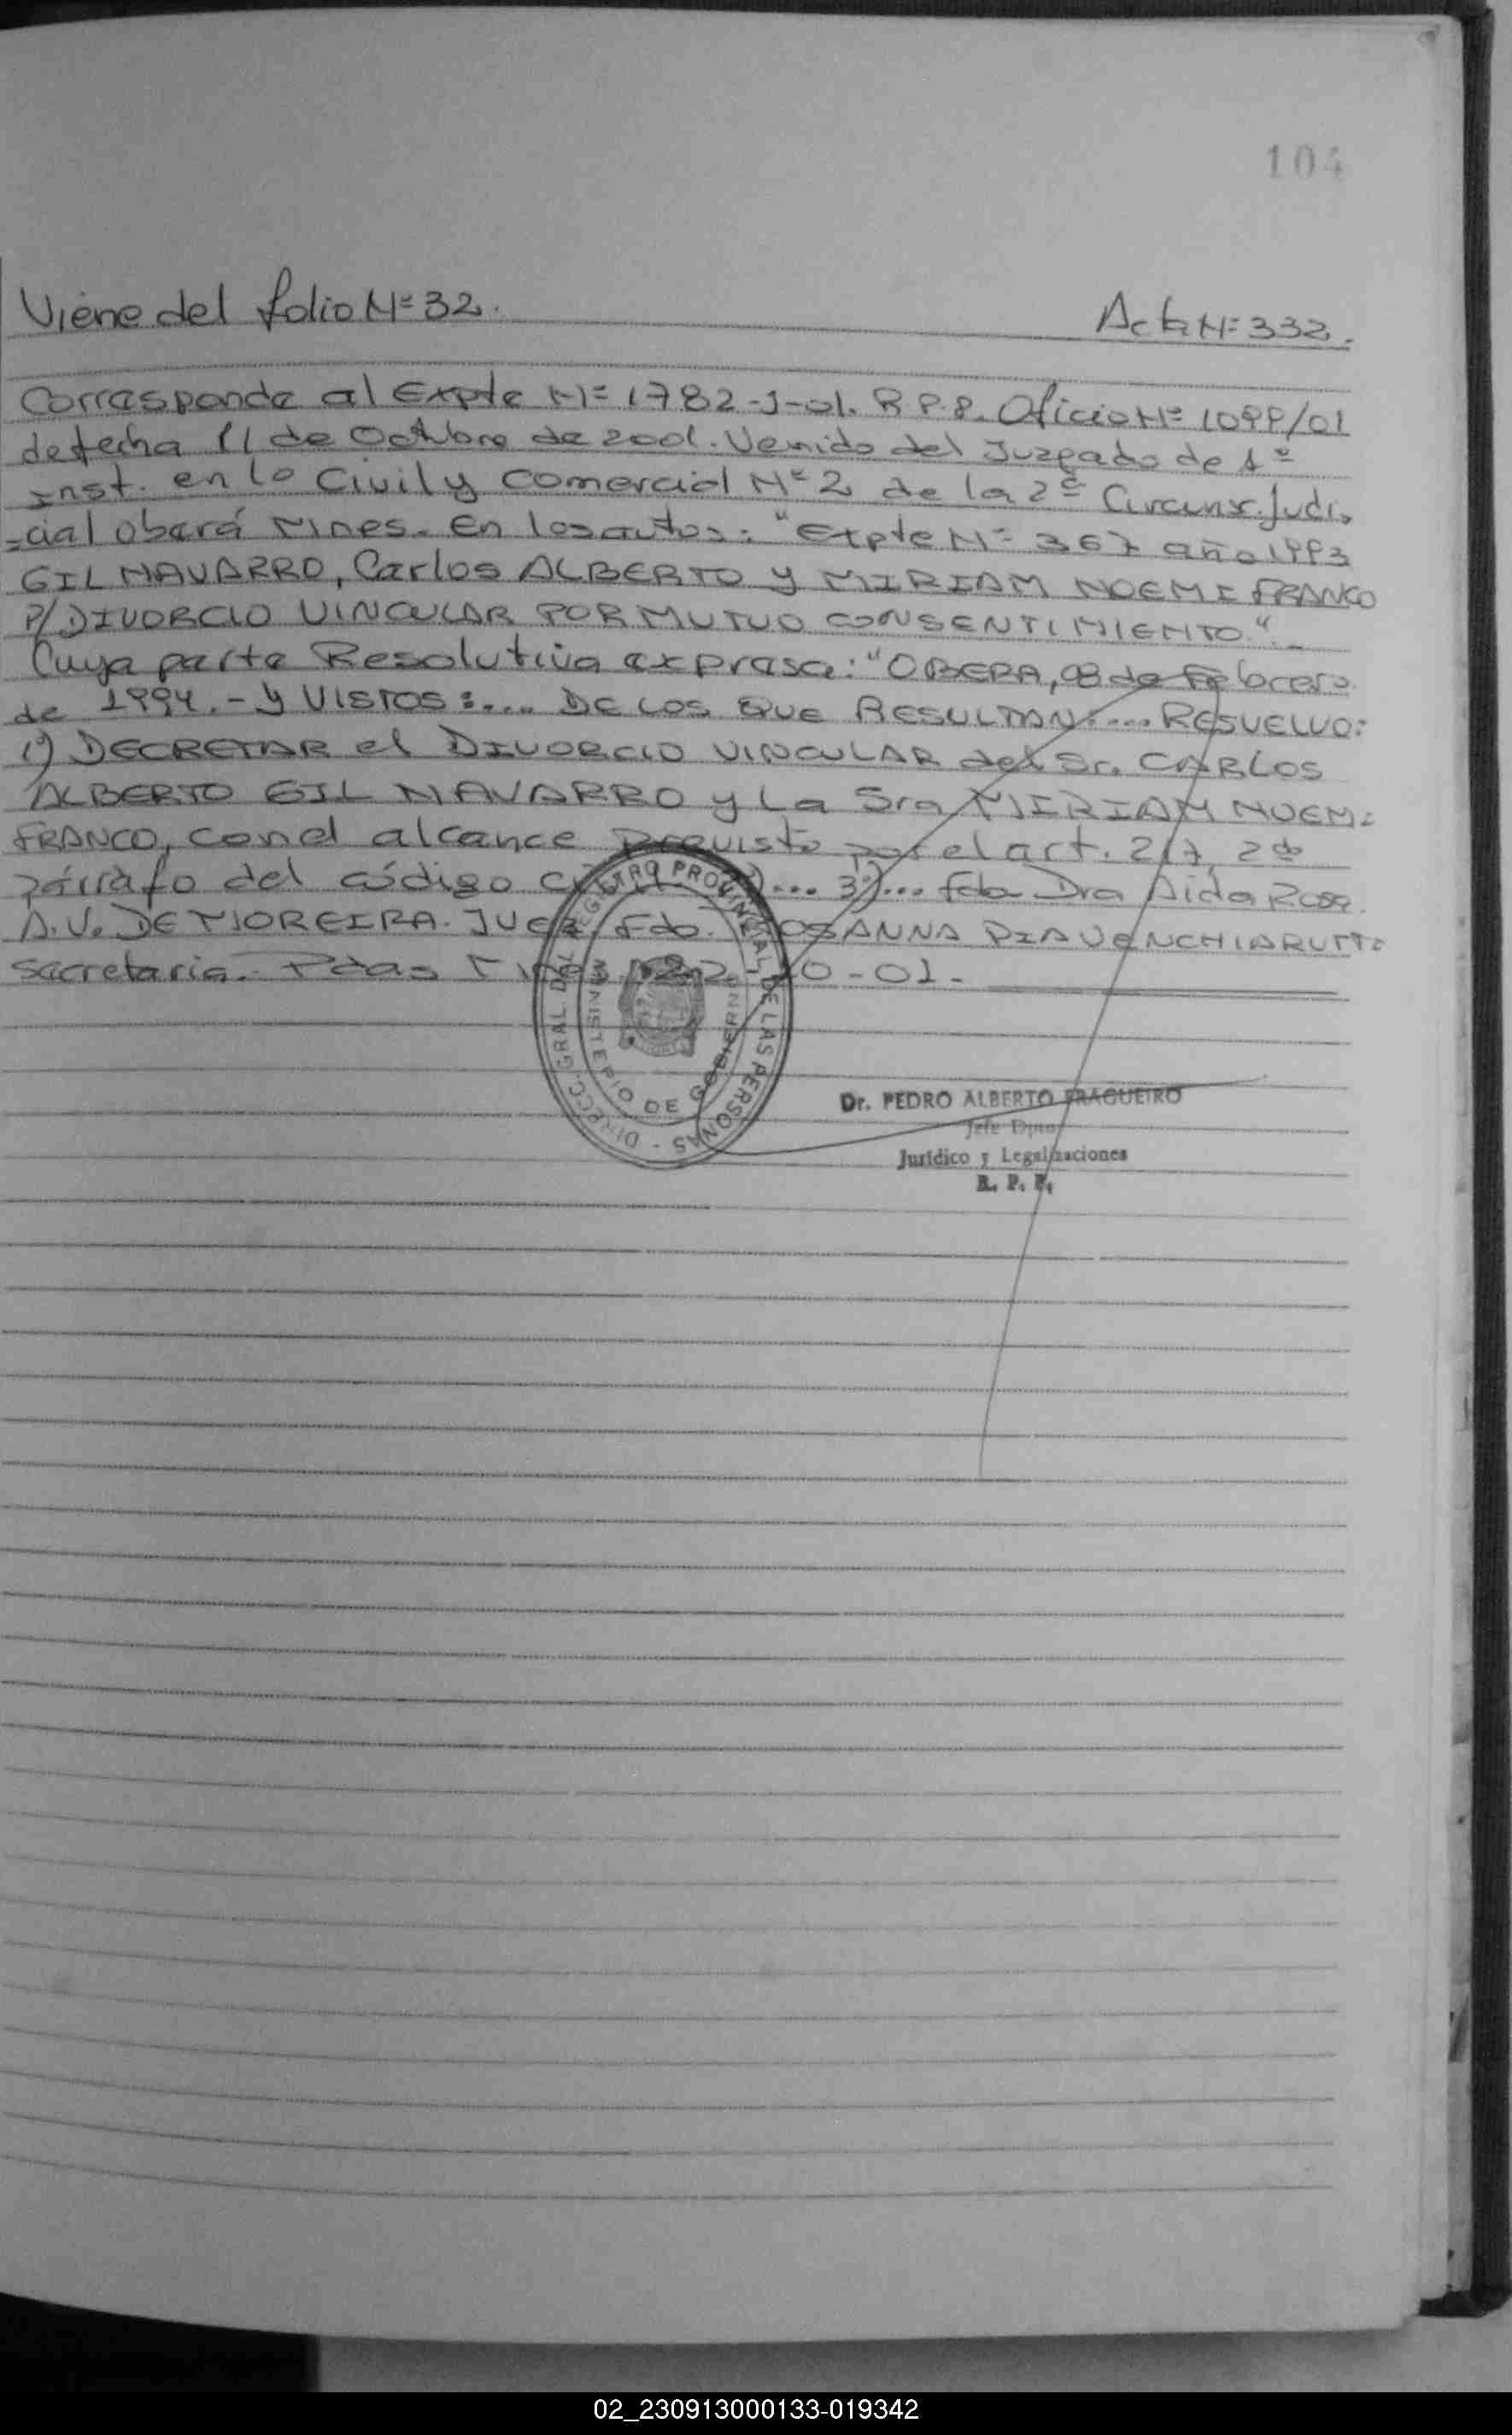 104
Viene del folio Nº 32.
Acta Nº 332.
Corresponde al Expte Nº 1782-J-01. R.P.P. Oficio Nº 1099/01
de fecha 11 de Octubre de 2001. Venido del Juzgado de 1º
Inst. en lo Civil y Comercial Nº 2 de la 2º Circunsc. Judi-
=cial oberá Mnes. En los autos: "Expte Nº 367 año 1993
GIL NAVARRO, Carlos ALBERTO y MIRIAM NOEMI FRANCO
P/DIVORCIO VINCULAR POR MUTUO CONSENTIMIENTO".-
Cuya parte Resolutiva expresa: "OBERA, 08 de Febrero
de 1994.- Y VISTOS:.... DE LOS QUE RESULTAN:.... RESUELVO:
1º) DECRETAR el DIVORCIO VINCULAR del Sr. CARLOS
ALBERTO GIL NAVARRO y La Sra MIRIAM NOEMI
FRANCO, con el alcance previsto por el art. 217, 2do
párrafo del código )... 3º)... fdo Dra Aida Rosa
A.V. DE MOREIRA. JUEZ. Fdo. ROSANNA PIA VENCHIARUTTI
Secretaria. Pdas Mnes. 22-10-01.-
DIRECC. GRAL. DEL REGISTRO PROVINCIAL DE LAS PERSONAS -
MINISTERIO DE GOBIERNO
Dr. PEDRO ALBERTO FRAGUEIRO
Jefe Dpto.
Jurídico y Legalizaciones
R. P. P.
02_230913000133-019342